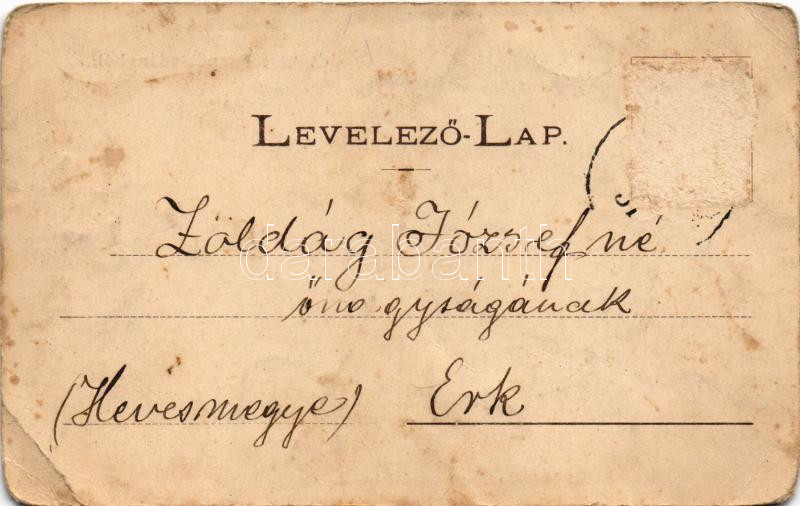 LEVELEZŐ-LAP.
Zöldág Józsefné
őnagyságának
(Hevesmegye) Erk
darabanth